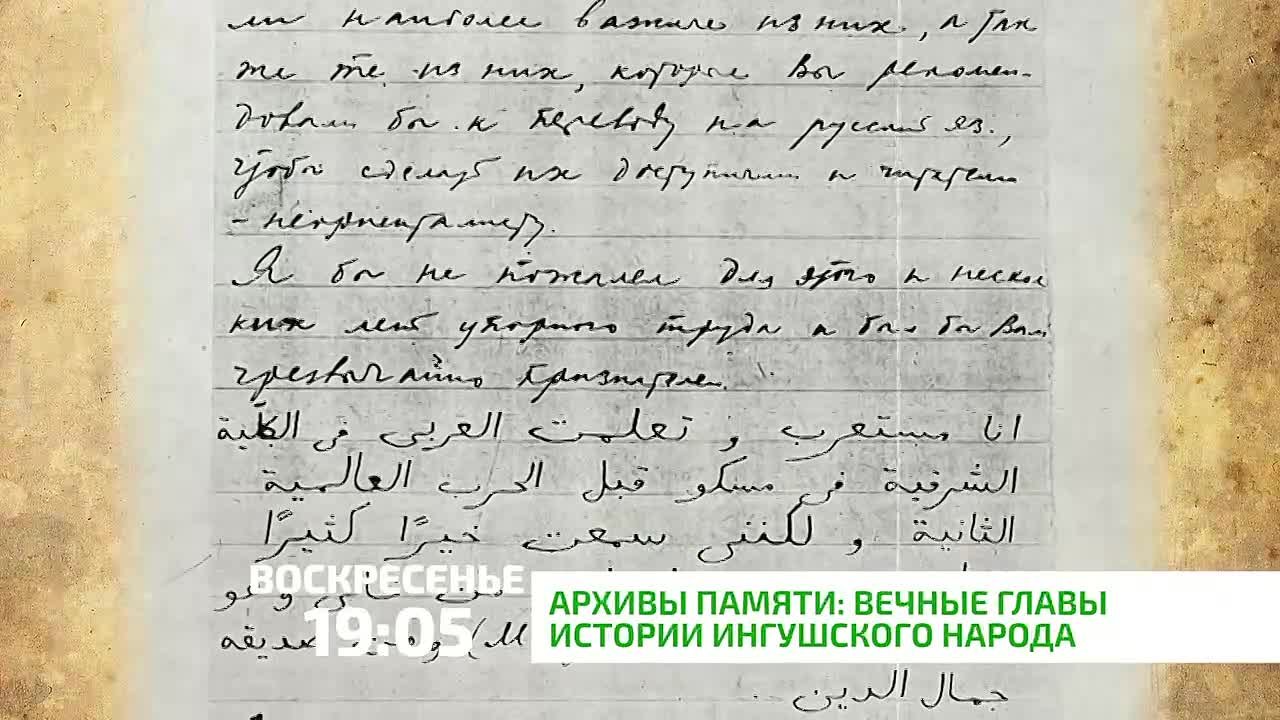 ли наиболее важные из них, а так
же те из них, которые Вы рекомен-
довали бы к переводу на русский яз.,
чтобы сделать их доступными и читателю
- неориенталисту.
Я бы не пожалел для этого и несколь
ких лет упорного труда и был бы Вам
чрезвычайно признателен.
انا مستعرب و تعلمت العربى فى الكلية
الشرقية فى مسكو قبل الحرب العالمية
الثانية و لكننى سمعت خيرًا كثيرًا
صديقه
جمال الدين ..
ВОСКРЕСЕНЬЕ
19:05
АРХИВЫ ПАМЯТИ: ВЕЧНЫЕ ГЛАВЫ
ИСТОРИИ ИНГУШСКОГО НАРОДА